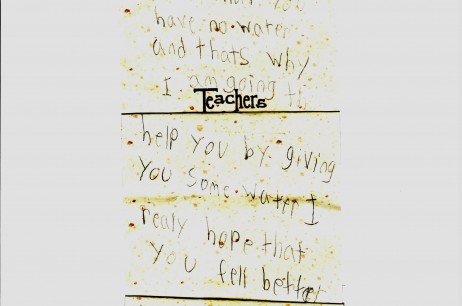 have no water
and thats why
I am going t
Teachers
help you by giving
you some water I
realy hope that
you fell better